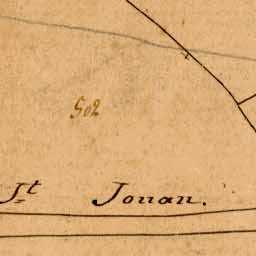 502
St Jonan.